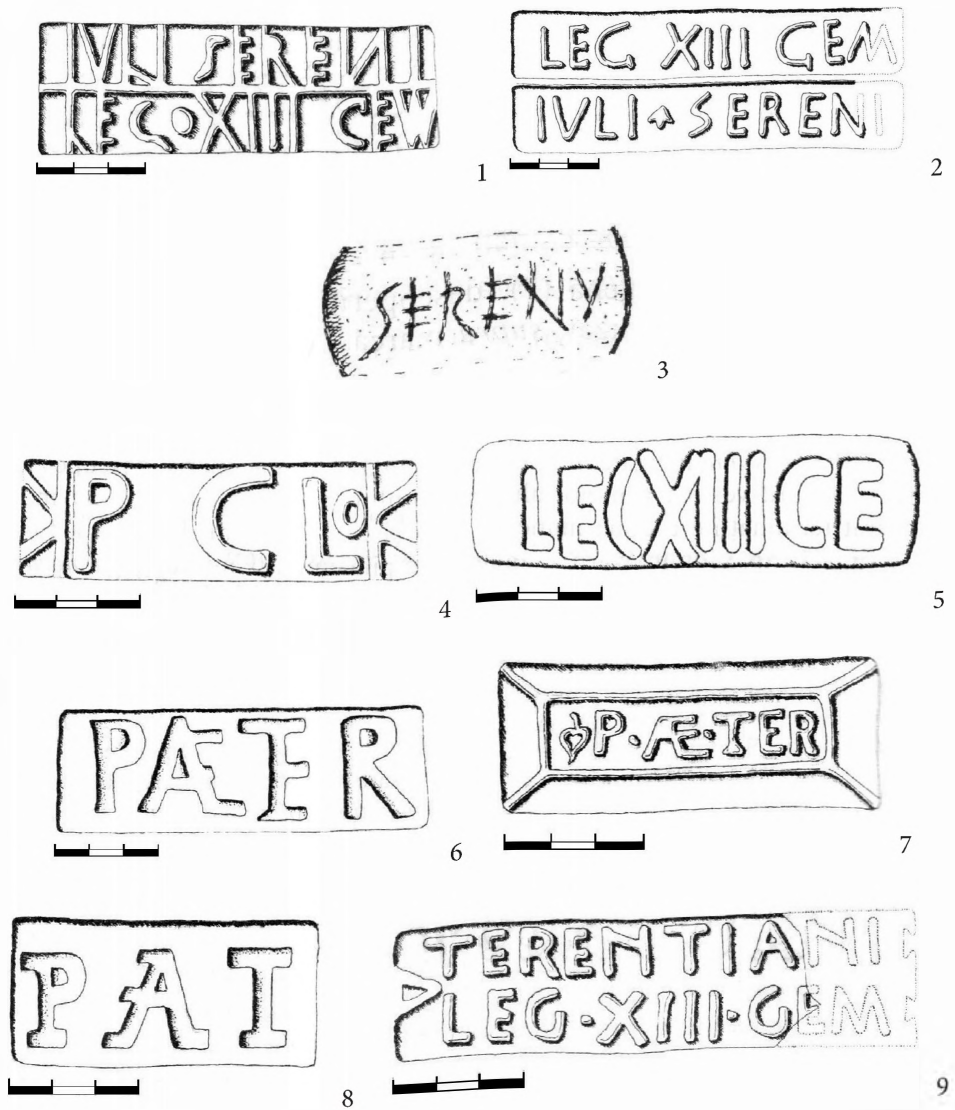 IVLI SERENII
LEG XIII GEM
1
LEG XIII GEM
IVLI SERENI
2
SERENV
3
P C Lo
4
LEGXIIIGE
5
PÆTER
6
P·Æ·TER
7
PAI
8
TERENTIANI
LEG·XIII·GEM
9